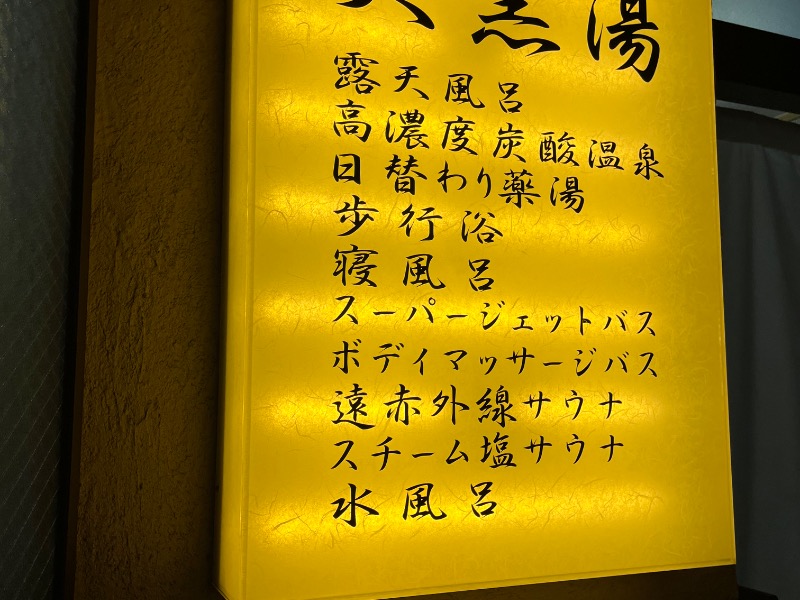 大黒湯
露天風呂
高濃度炭酸温泉
日替わり薬湯
歩行浴
寝風呂
スーパージェットバス
ボディマッサージバス
遠赤外線サウナ
スチーム塩サウナ
水風呂